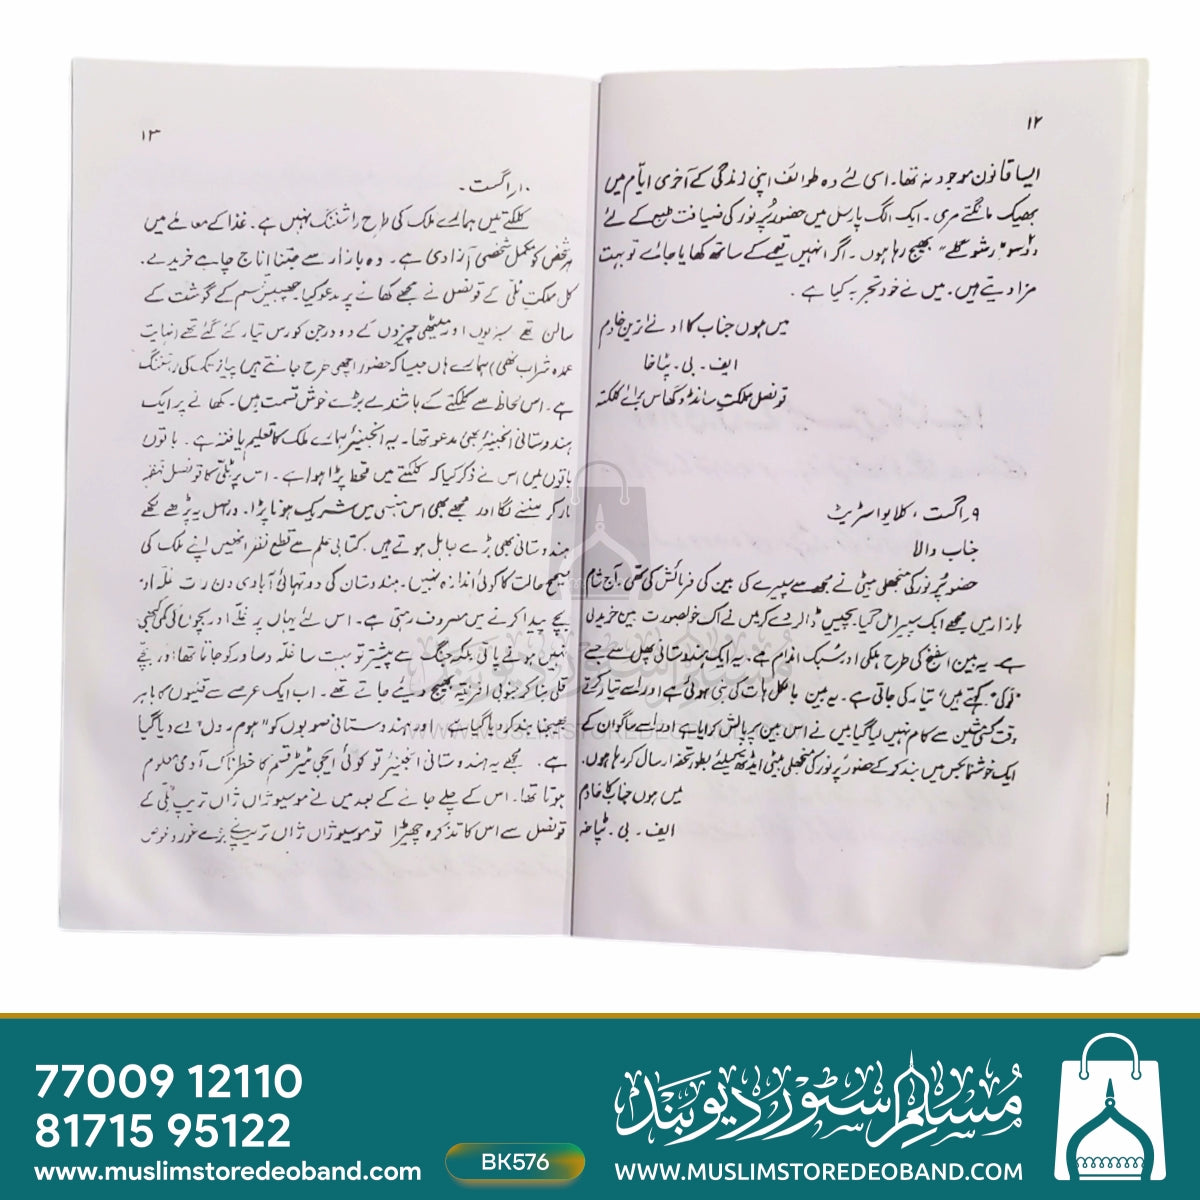 ۱۲
ایسا قانون موجود نہ تھا۔ اسی لئے وہ طوائف اپنی زندگی کے آخری ایّام میں
بھیک مانگتے مری۔ ایک الگ پارسل میں حضور پُر نور کی ضیافت طبع کے لئے
بھیج رہا ہوں۔ اگر انہیں قیمے کے ساتھ کھایا جائے تو بہت
مزا دیتے ہیں۔ میں نے خود تجربہ کیا ہے۔
میں ہوں جناب کا ادنےٰ ترین خادم
ایف۔ بی۔ پٹاخا
قونصل مملکتِ سانڈوگھاس برائے کلکتہ
۹ر اگست، کلایو اسٹریٹ
جناب والا
حضور پُر نور کی منجھلی بیٹی نے مجھ سے سپیرے کی بین کی فرمائش کی تھی۔ آج شام
بازار میں مجھے ایک سپیرا مل گیا۔ پچیس ڈالر دے کر میں نے اک خوبصورت بین خریدلی
ہے۔ یہ بین اسفنج کی طرح ہلکی اور سُبک اندام ہے۔ یہ ایک ہندوستانی پھل سے جسے
"لوکی" کہتے ہیں تیار کی جاتی ہے۔ یہ بین بالکل ہاتھ کی بنی ہوئی ہے اور اسے تیار کرتے
وقت کسی مشین سے کام نہیں لیا گیا۔ میں نے اس بین پر پالش کرایا ہے اور اسے ساگوان کے
ایک خوشنما بکس میں بند کر کے حضور پُر نور کی منجھلی بیٹی ایڈتھ کیلئے بطور تحفہ ارسال کر رہا ہوں۔
میں ہوں جناب کا خادم
ایف۔ بی۔ پٹاخہ
۱۳
۱۰ر اگست۔
کلکتے میں ہمارے ملک کی طرح راشننگ نہیں ہے۔ غذا کے معاملے میں
ہر شخص کو مکمل شخصی آزادی ہے۔ وہ بازار سے جتنا اناج چاہے خریدے۔
کل مملکت ٹلی کے قونصل نے مجھے کھانے پر مدعو کیا۔ چھبیس قسم کے گوشت کے
سالن تھے۔ سبزیوں اور میٹھی چیزوں کے دو درجن کورس تیار کئے گئے تھے (نہایت
عمدہ شراب تھی) ہمارے ہاں جیسا کہ حضور اچھی طرح جانتے ہیں پیاز تک کی راشننگ
ہے۔ اس لحاظ سے کلکتے کے باشندے بڑے خوش قسمت ہیں۔ کھانے پر ایک
ہندوستانی انجینئر بھی مدعو تھا۔ یہ انجینئر ہمارے ملک کا تعلیم یافتہ ہے۔ باتوں
باتوں میں اس نے ذکر کیا کہ کلکتے میں قحط پڑا ہوا ہے۔ اس پر ٹلی کا قونصل قہقہہ
مار کر ہنسنے لگا اور مجھے بھی اس ہنسی میں شریک ہونا پڑا۔ دراصل یہ پڑھے لکھے
ہندوستانی بھی بڑے جاہل ہوتے ہیں۔ کتابی علم سے قطع نظر انہیں اپنے ملک کی
صحیح حالت کا کوئی اندازہ نہیں۔ ہندوستان کی دو تہائی آبادی دن رات غلہ اور
بچے پیدا کرنے میں مصروف رہتی ہے۔ اس لئے یہاں پر غلّے اور بچوں کی کمی کبھی
نہیں ہونے پاتی بلکہ جنگ سے پیشتر تو بہت سا غلہ دساور کو جاتا تھا اور بچے
قلی بنا کر جنوبی افریقہ بھیج دیئے جاتے تھے۔ اب ایک عرصے سے قلیوں کا باہر
بھیجنا بند کر دیا گیا ہے۔ اور ہندوستانی صوبوں کو "ہوم رول" دے دیا گیا
ہے۔ مجھے یہ ہندوستانی انجینئر تو کوئی ایجی ٹیٹر قسم کا خطرناک آدمی معلوم
ہوتا تھا۔ اس کے چلے جانے کے بعد میں نے موسیو ژاں ژاں تریپ ٹلی کے
قونصل سے اس کا تذکرہ چھیڑا تو موسیو ژاں ژاں تریپ نے بڑے غور و خوض
77009 12110
81715 95122
www.muslimstoredeoband.com
BK576
مسلم سٹور دیوبند
WWW.MUSLIMSTOREDEOBAND.COM